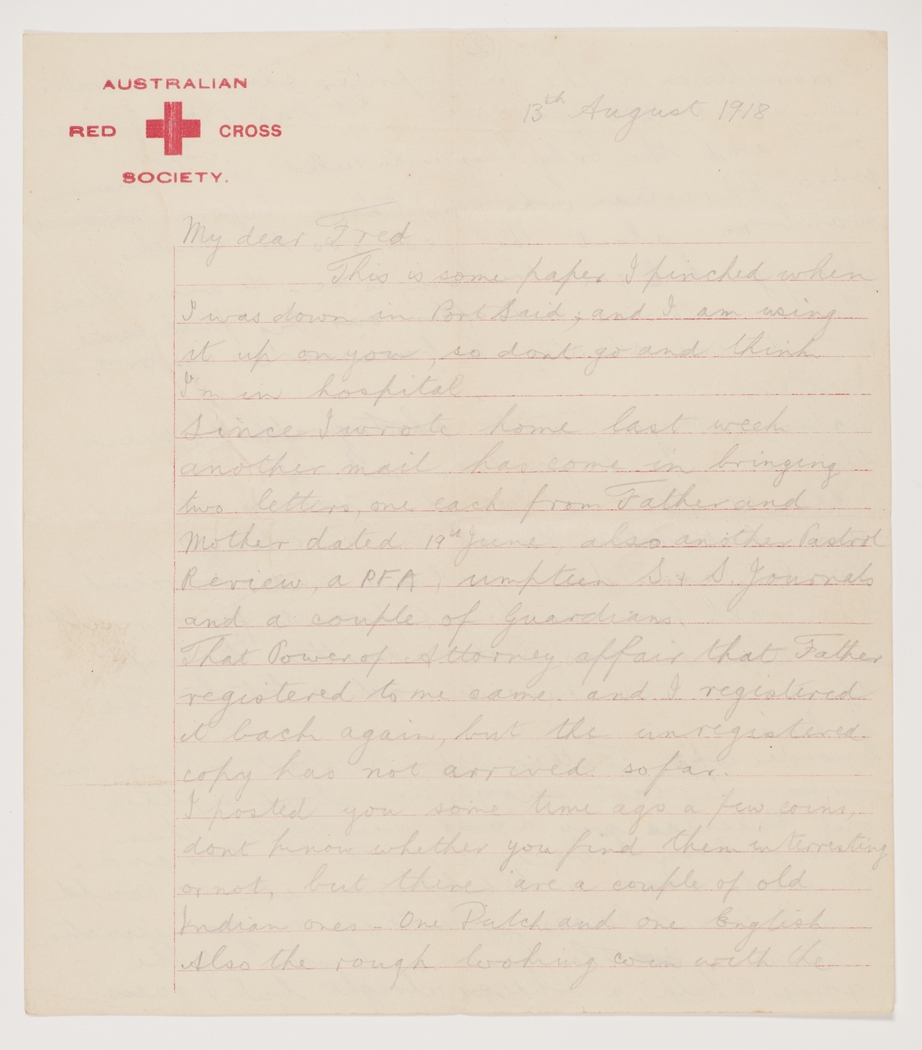 AUSTRALIAN
RED CROSS
SOCIETY.
13th August 1918
My dear Fred
This is some paper I pinched when
I was down in Port Said; and I am using
it up on you, so dont go and think
I'm in hospital
Since I wrote home last week
another mail has come in bringing
two letters, one each from Father and
Mother dated 19th June also another Pastrol
Review, a PFA, umpteen S. & S. Journals
and a couple of Guardians.
That Power of Attorney affair that Father
registered to me came. and I registered
it back again, but the unregistered.
copy has not arrived so far.
I posted you some time ago a few coins,
dont know whether you find them interresting
or not, but there are a couple of old
Indian ones - One Dutch and one English
Also the rough looking coin with the